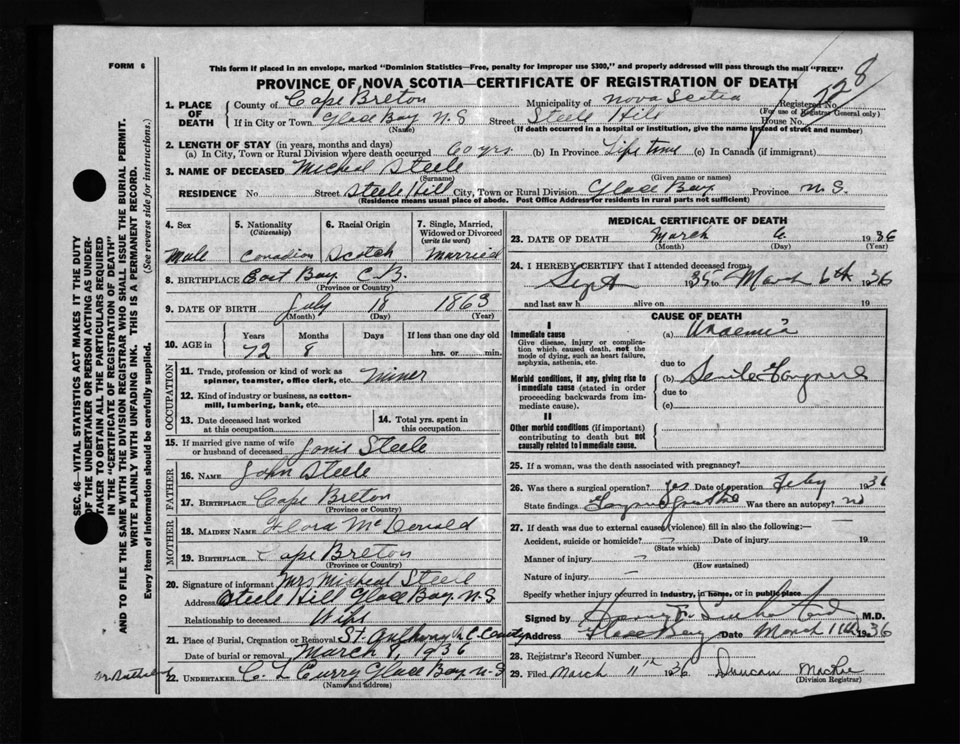 FORM 6
This form if placed in an envelope, marked "Dominion Statistics—Free, penalty for improper use $300," and properly addressed will pass through the mail "FREE"
PROVINCE OF NOVA SCOTIA—CERTIFICATE OF REGISTRATION OF DEATH
1. PLACE OF DEATH
County of Cape Breton Municipality of Nova Scotia Registered No.
(For use of Registrar General only)
If in City or Town Glace Bay N.S Street Steele Hill House No.
(Name) (If death occurred in a hospital or institution, give the name instead of street and number)
2. LENGTH OF STAY (in years, months and days)
(a) In City, Town or Rural Division where death occurred 60 yrs (b) In Province Life time (c) In Canada (if immigrant)
3. NAME OF DECEASED Micheal Steele
(Surname) (Given name or names)
RESIDENCE No Street Steele Hill City, Town or Rural Division Glace Bay Province N.S.
(Residence means usual place of abode. Post Office Address for residents in rural parts not sufficient)
4. Sex Male
5. Nationality (Citizenship) Canadian
6. Racial Origin Scotch
7. Single, Married, Widowed or Divorced (write the word) Married
8. BIRTHPLACE East Bay C.B.
(Province or Country)
9. DATE OF BIRTH July 18 1863
(Month) (Day) (Year)
10. AGE in Years 72 Months 8 Days If less than one day old hrs. or min.
OCCUPATION
11. Trade, profession or kind of work as spinner, teamster, office clerk, etc. Miner
12. Kind of industry or business, as cotton-mill, lumbering, bank, etc.
13. Date deceased last worked at this occupation
14. Total yrs. spent in this occupation
15. If married give name of wife or husband of deceased Steele
FATHER
16. NAME John Steele
17. BIRTHPLACE Cape Breton
(Province or Country)
MOTHER
18. MAIDEN NAME Flora McDonald
19. BIRTHPLACE Cape Breton
(Province or Country)
20. Signature of informant Mrs Micheal Steele
Address Steele Hill Glace Bay N.S
Relationship to deceased Wife
21. Place of Burial, Cremation or Removal St. Anthony
Date of burial or removal March 9, 1936
22. UNDERTAKER C. L Curry Glace Bay N.S
(Name and address)
MEDICAL CERTIFICATE OF DEATH
23. DATE OF DEATH March 6 1936
(Month) (Day) (Year)
24. I HEREBY CERTIFY that I attended deceased from
Sept 1935 to March 6th 1936
and last saw h alive on 19
CAUSE OF DEATH
I
Immediate cause
Give disease, injury or complication which caused death, not the mode of dying, such as heart failure, asphyxia, asthenia, etc.
(a) Anaemia
due to
Morbid conditions, if any, giving rise to immediate cause (stated in order proceeding backwards from immediate cause).
(b) Senile Gangrene
due to
(c)
II
Other morbid conditions (if important) contributing to death but not causally related to immediate cause.
25. If a woman, was the death associated with pregnancy?
26. Was there a surgical operation? yes Date of operation Feby 1936
State findings Was there an autopsy? no
27. If death was due to external causes (violence) fill in also the following:—
Accident, suicide or homicide? Date of injury 19
(State which)
Manner of injury
(How sustained)
Nature of injury
Specify whether injury occurred in Industry, in home, or in public place
Signed by M.D.
Address Glace Bay Date March 11th 1936
28. Registrar's Record Number
29. Filed March 11th 1936 Duncan
(Division Registrar)
SEC. 46—VITAL STATISTICS ACT MAKES IT THE DUTY
OF THE UNDERTAKER OR PERSON ACTING AS UNDER-
TAKER TO OBTAIN ALL THE PARTICULARS REQUIRED
IN THE "CERTIFICATE OF REGISTRATION OF DEATH"
AND TO FILE THE SAME WITH THE DIVISION REGISTRAR WHO SHALL ISSUE THE BURIAL PERMIT.
WRITE PLAINLY WITH UNFADING INK. THIS IS A PERMANENT RECORD.
Every item of information should be carefully supplied. (See reverse side for instructions.)